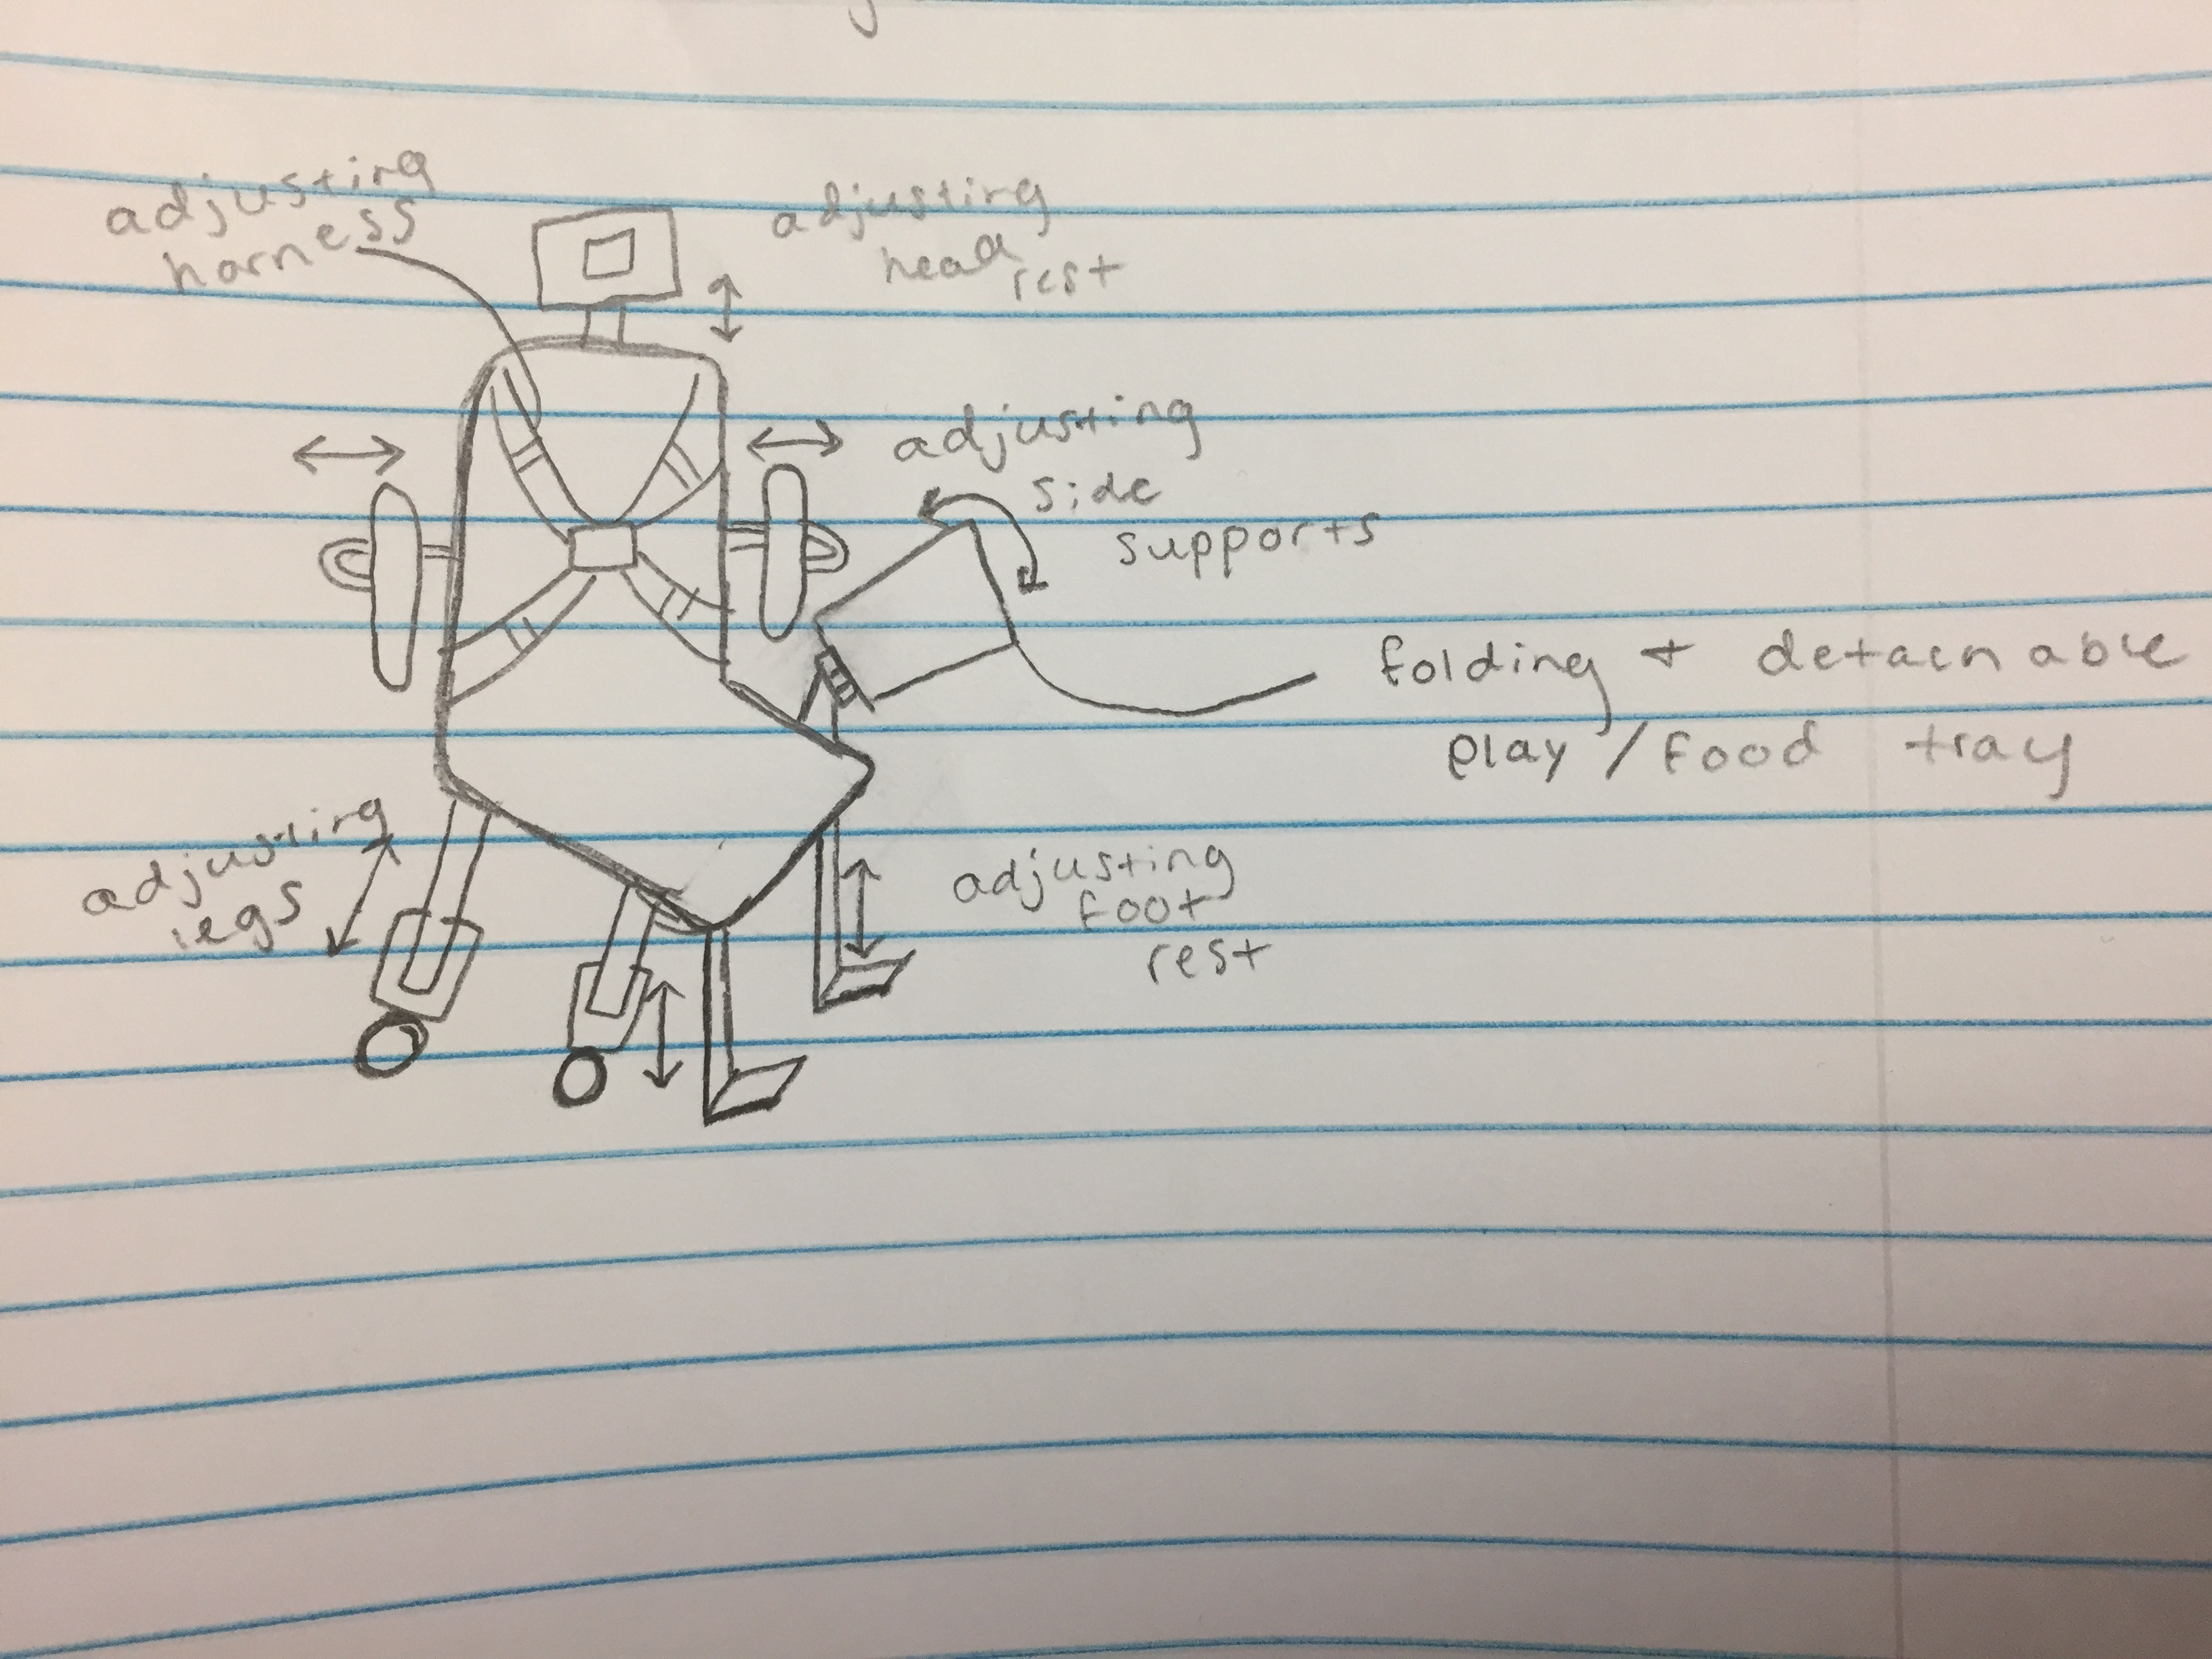 adjusting
harness
adjusting
head
rest
adjusting
side
supports
folding + detachable
play / food tray
adjusting
legs
adjusting
foot
rest